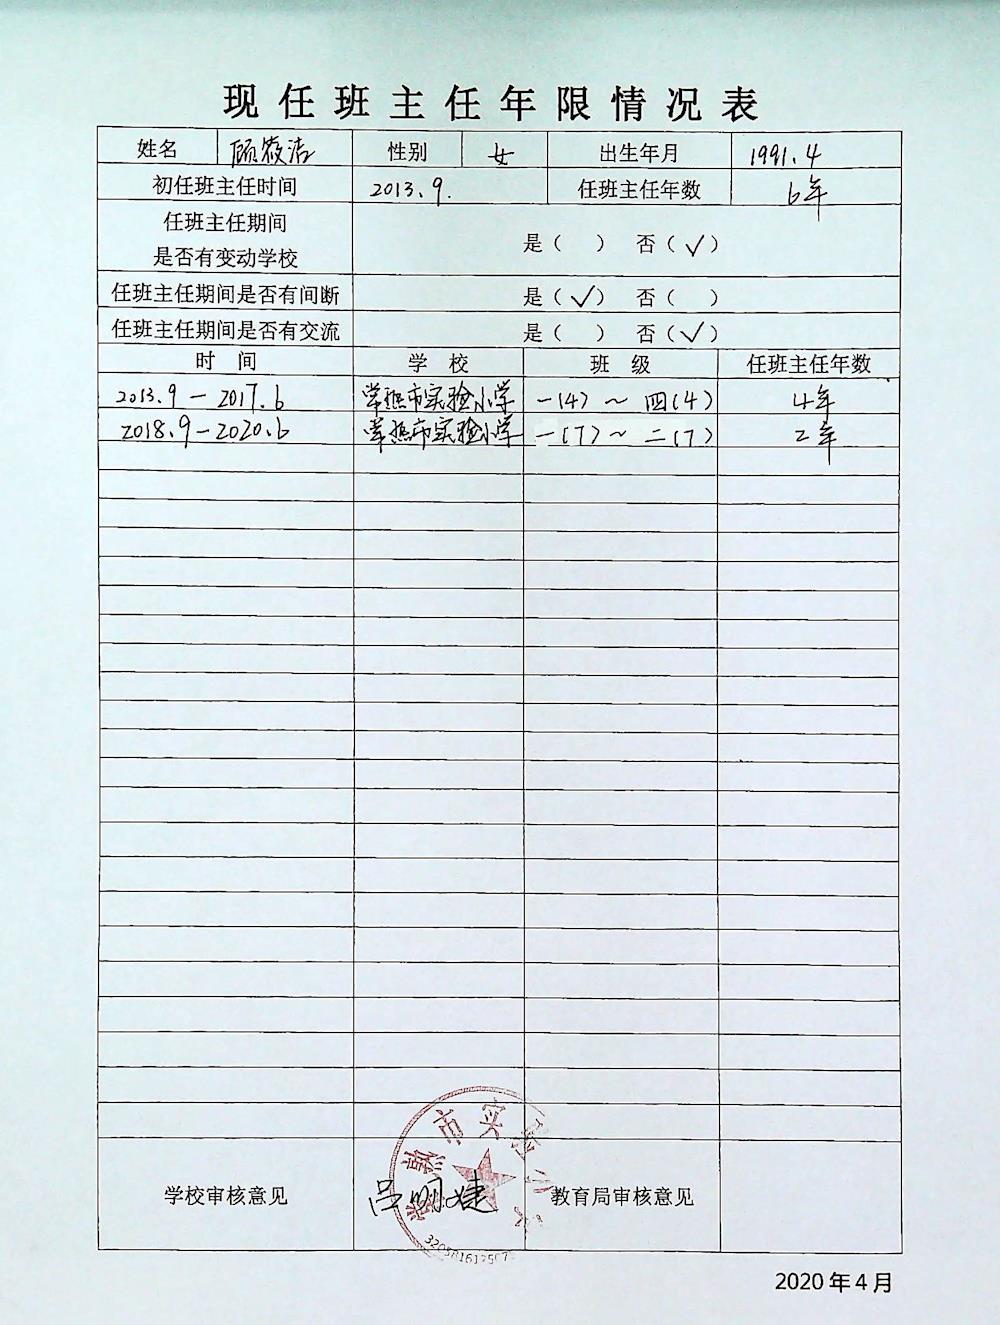 现任班主任年限情况表
姓名 顾筱洁 性别 女 出生年月 1991.4
初任班主任时间 2013.9. 任班主任年数 6年
任班主任期间
是否有变动学校 是（ ） 否（√）
任班主任期间是否有间断 是（√） 否（ ）
任班主任期间是否有交流 是（ ） 否（√）
时 间 学 校 班 级 任班主任年数
2013.9-2017.6 常熟市实验小学 一(4)～四(4) 4年
2018.9-2020.6 常熟市实验小学 一(7)～二(7) 2年
常熟市实验小学
学校审核意见 教育局审核意见
2020年4月